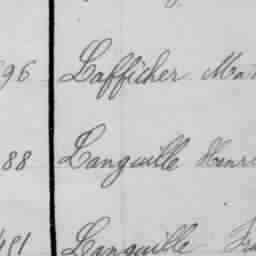 96 Lafficher Mat
88 Languille Henri
481 Languille Fra